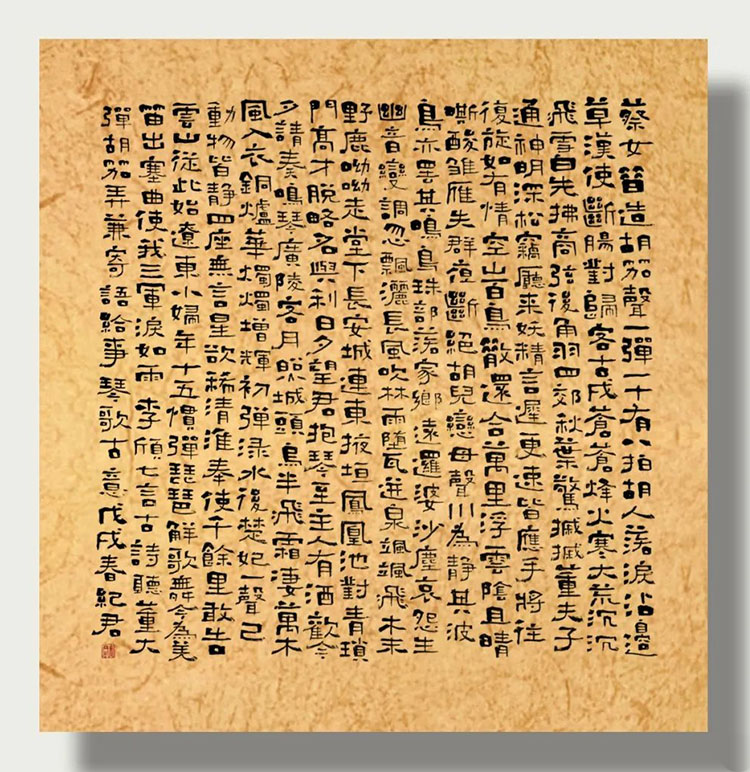 蔡女昔造胡笳聲一彈一十有八拍胡人落淚沾邊
草漢使斷腸對歸客古戍蒼蒼烽火寒大荒沉沉
飛雪白先拂商弦後角羽四郊秋葉驚摵摵董夫子
通神明深松竊聽来妖精言遲更速皆應手將往
復旋如有情空山百鳥散還合萬里浮雲陰且晴
嘶酸雛雁失群夜斷絕胡兒戀母聲川為靜其波
鳥亦罷其鳴鳥珠部落家鄉遠邏婆沙塵哀怨生
幽音變調忽飄灑長風吹林雨墮瓦迸泉颯颯飛木末
野鹿呦呦走堂下長安城連東掖垣鳳凰池對青瑣
門高才脫略名與利日夕望君抱琴至主人有酒歡今
夕請奏鳴琴廣陵客月照城頭烏半飛霜淒萬木
風入衣銅爐華燭燭增輝初彈淥水後楚妃一聲已
動物皆靜四座無言星欲稀清淮奉使千餘里敢告
雲山從此始遼東小婦年十五慣彈琵琶解歌舞今為羌
笛出塞曲使我三軍淚如雨李頎七言古詩聽董大
彈胡笳弄兼寄語給事琴歌古意戊戌春紀君